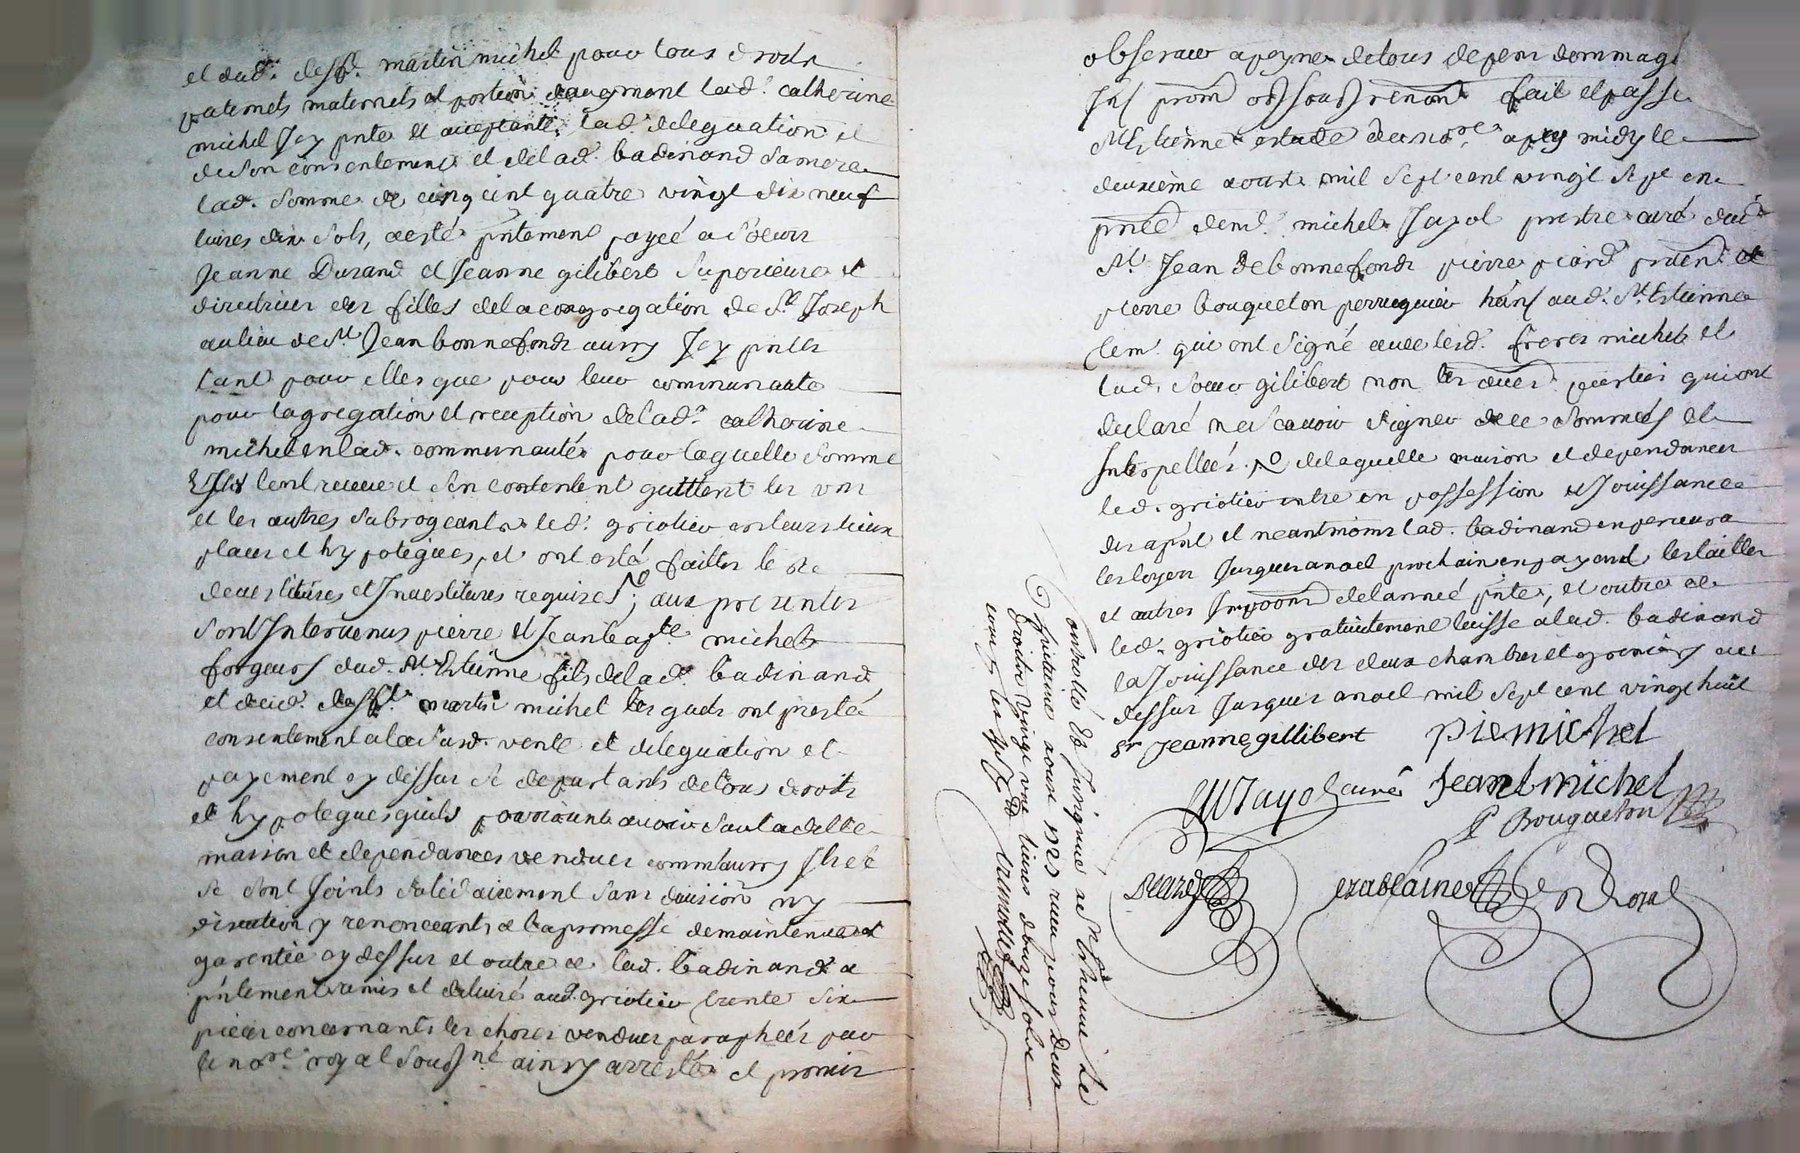 et dud. deff. martin michel pour tous droits
paternels maternels et portion daugment lad. catherine
michel Jcy pnte et acceptante, lad. deleguation et
de son consentement et de lad. badinand sa mere
lad. somme de cinq cent quatre vingt dix neuf
livres dix sols, a esté pntement payeé a soeurs
Jeanne Durand et Jeanne gilibert Superieure et
directrice des filles de la congregation de St Joseph
au lieu de St Jean bonnefonds aussy Jcy pntes
tant pour elles que pour leur communauté
pour lagregation et reception de lad. catherine
michel en lad. communauté pour laquelle somme
lont receue et sen contentent quittent les uns
et les autres subrogeants led. griotier en leurs lieux
place et hypoteques, et ont esté faittes le
devestitures et Investitures requises; aux presentes
sont Intervenus pierre et Jean bapte michel
forgeurs dud. St Estienne fils de lad. badinand
et dud. deff. martin michel lesquels ont presté
consentement a la susd. vente et deleguation et
payement cy dessus se departants de tous droits
et hypoteques quils pourroient avoir sur la ditte
maison et dependances vendues comm'aussy Ils
se sont Joints solidairement sans division ny
discution y renonceants a la promesse de maintenue et
garentie cy dessus et outre ce lad. badinand a
pntement remis et deluré aud. griotier trente six
pieces concernants les choses vendues paraphées par
le nore. royal soussné ainsy arresté et promis
observer a peyne de tous depens dommages
Int prom obs sous renont fait et passé a
St Estienne estude du nore. apres midy le
deuxième aoust mil sept cent vingt sept en
pnce de mr. michel Jayol prestre curé dud.
St Jean de bonnefonds pierre piard praticn et
pierre bouqueton perruquier hants aud. St Estienne
tem. qui ont signé avec lesd. freres michel et
lad. soeur gilibert non les autres parties qui ont
declaré ne scavoir signer de ce sommés et
Interpelleés. de laquelle maison et dependances
led. griotier entre en possession et Jouissance
des apnt et neantmoins lad. badinand en percevra
les loyers Jusques a noel prochain en payant les tailles
et autres Impoons de lanneé pnte, et outre ce
led. griotier gratuitement laisse a lad. badinand
la Jouissance des deux chambres et greniers cy
dessus Jusques a noel mil sept cent vingt huit
Sr Jeanne gillibert piemichel
MJayol curé Jeanbmichel
P Bougueton
piard
Controllé et Insinué a St Estienne Le
quittaine aoust 1727 receu pour deux
droits vingt une livres douze sols